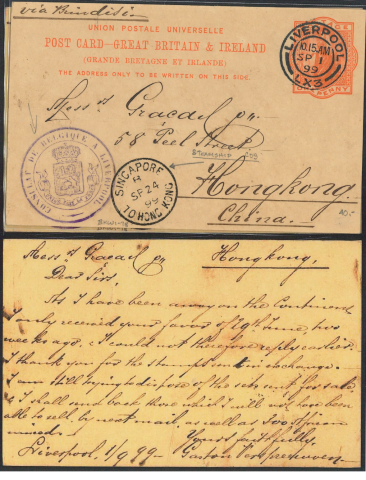 via Brindisi
UNION POSTALE UNIVERSELLE
POST CARD—GREAT BRITAIN & IRELAND
(GRANDE BRETAGNE ET IRLANDE)
THE ADDRESS ONLY TO BE WRITTEN ON THIS SIDE.
LIVERPOOL
10.15 AM
SP 1
99
LX3
PENNY
Mess rs Gracal
58 Peel Street
Hongkong
China.
CONSULAT DE BELGIQUE A LIVERPOOL
SINGAPORE TO HONG KONG
SP 24
99
Mess rs Gracal
Hongkong,
Dear Sirs,
As I have been away on the Continent
I only received your favor of 29th June, two
weeks ago, & I could not therefore reply earlier.
I thank you for the stamps sent in exchange.
I am still trying to dispose of the sets sent for sale,
& I shall send back those which I will not have been
able to sell, by next mail, as well as 300
mixed.
Yours faithfully,
Liverpool, 1/9 99 — Gaston